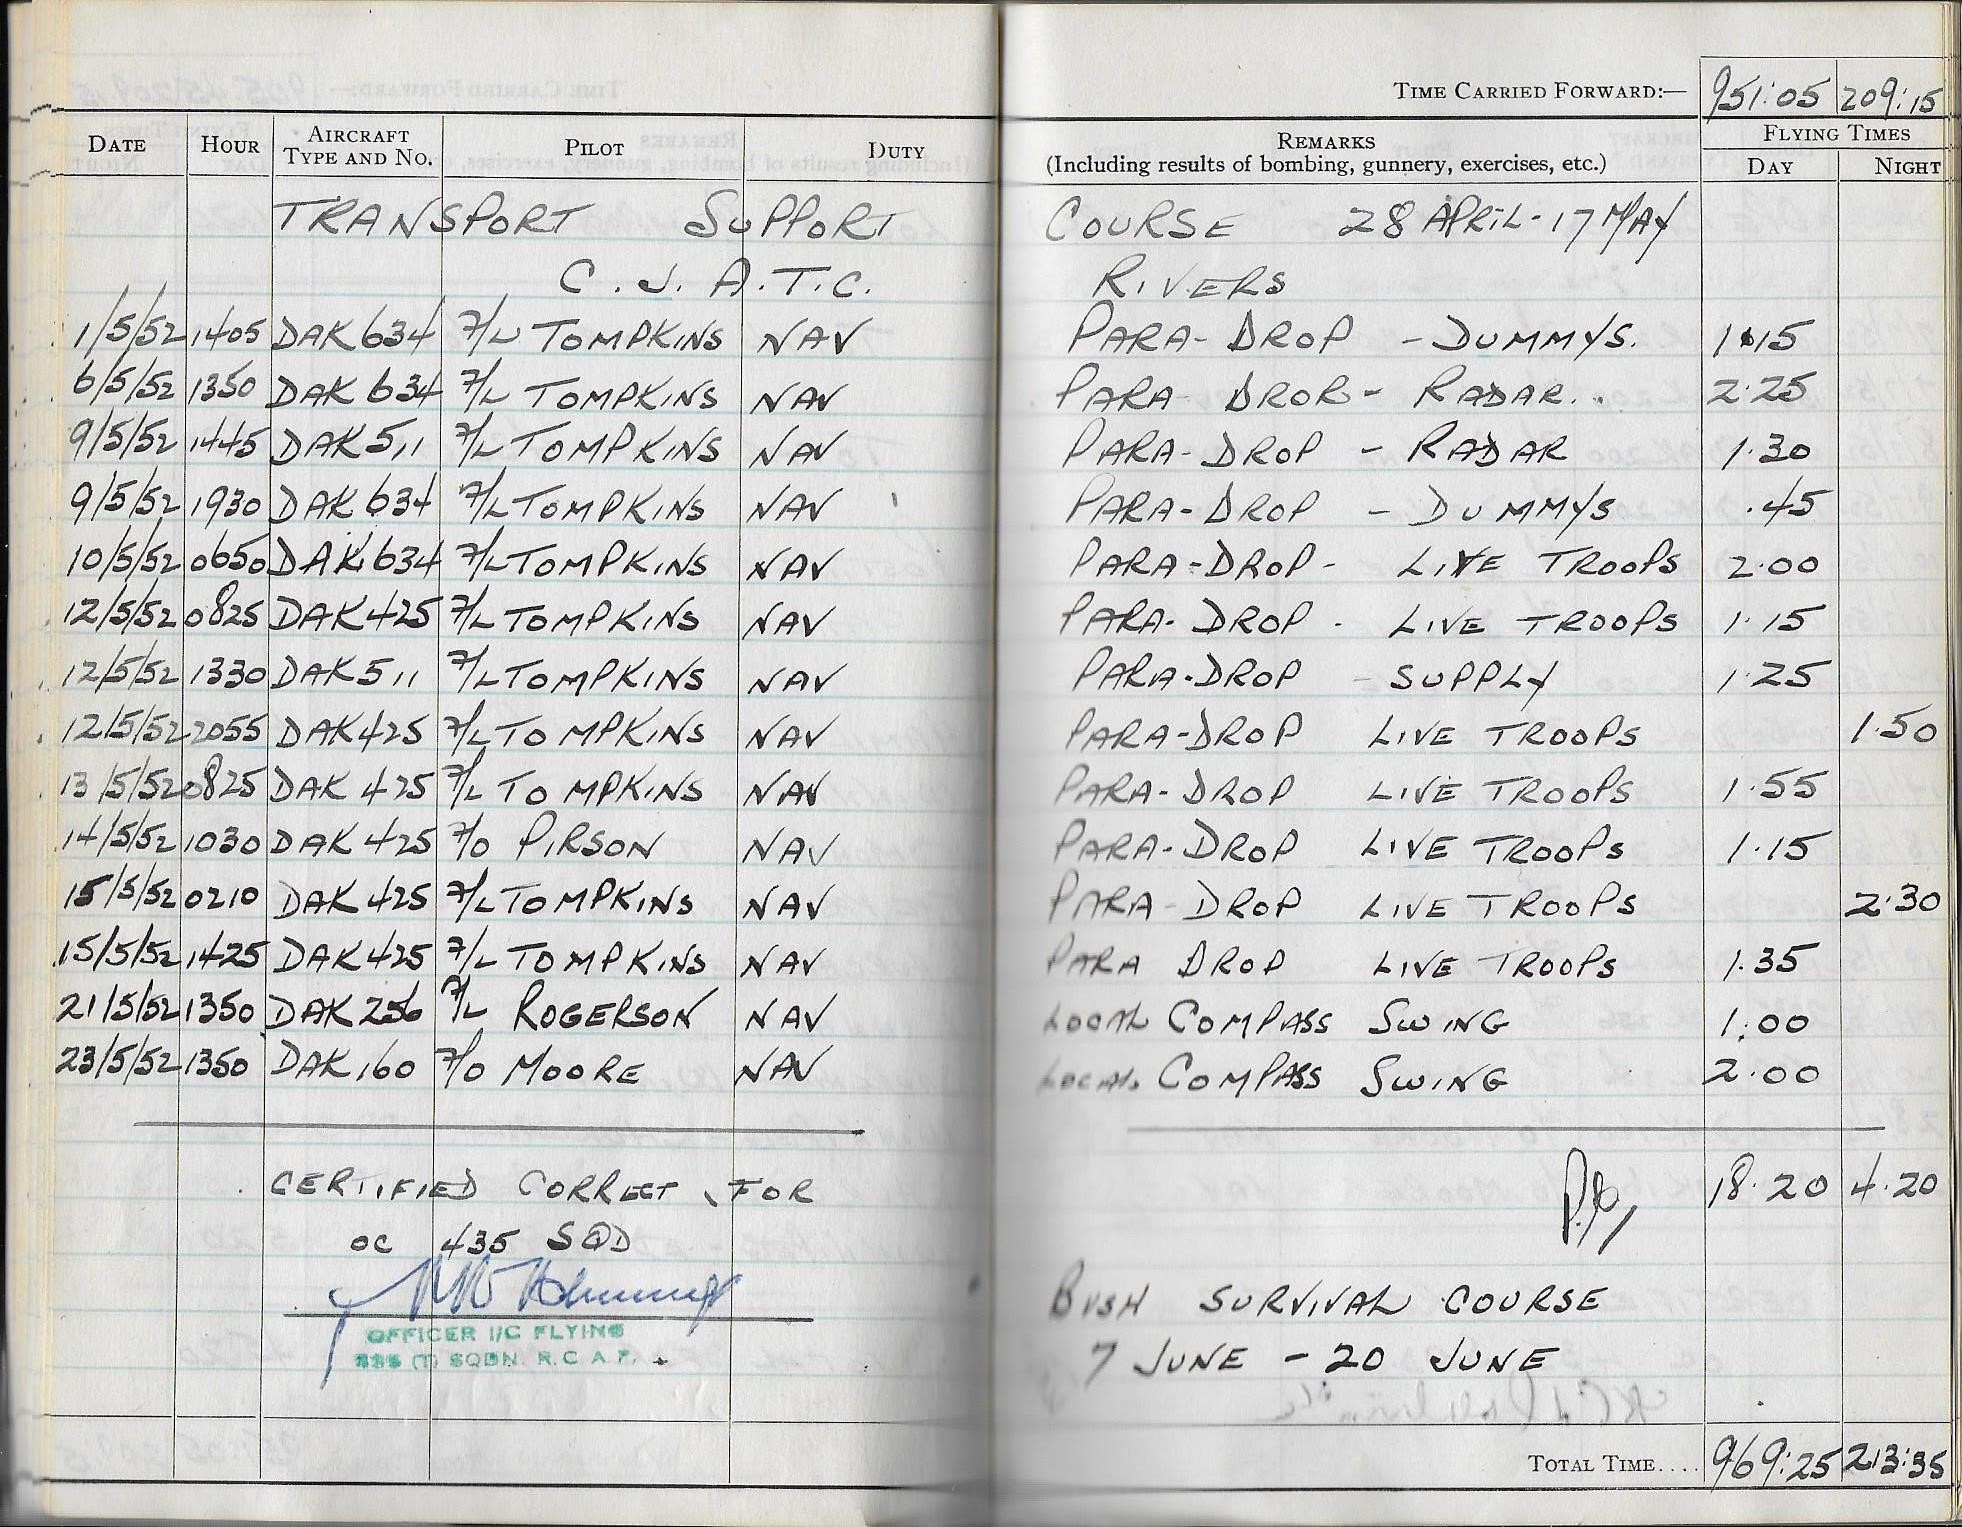 TIME CARRIED FORWARD:— 951:05 209:15
DATE HOUR AIRCRAFT TYPE AND NO. PILOT DUTY REMARKS (Including results of bombing, gunnery, exercises, etc.) FLYING TIMES DAY NIGHT
TRANSPORT SUPPORT COURSE 28 APRIL - 17 MAY
C.J.A.T.C. RIVERS
1/5/52 1405 DAK 634 F/L TOMPKINS NAV PARA-DROP - DUMMYS. 1.15
6/5/52 1350 DAK 634 F/L TOMPKINS NAV PARA DROP - RADAR. 2.25
9/5/52 1445 DAK 511 F/L TOMPKINS NAV PARA-DROP - RADAR 1.30
9/5/52 1930 DAK 634 F/L TOMPKINS NAV PARA-DROP - DUMMYS .45
10/5/52 0650 DAK 634 F/L TOMPKINS NAV PARA-DROP - LIVE TROOPS 2.00
12/5/52 0825 DAK 425 F/L TOMPKINS NAV PARA-DROP - LIVE TROOPS 1.15
12/5/52 1330 DAK 511 F/L TOMPKINS NAV PARA-DROP - SUPPLY 1.25
12/5/52 2055 DAK 425 F/L TOMPKINS NAV PARA-DROP LIVE TROOPS 1.50
13/5/52 0825 DAK 425 F/L TOMPKINS NAV PARA-DROP LIVE TROOPS 1.55
14/5/52 1030 DAK 425 F/O PIRSON NAV PARA-DROP LIVE TROOPS 1.15
15/5/52 0210 DAK 425 F/L TOMPKINS NAV PARA-DROP LIVE TROOPS 2.30
15/5/52 1425 DAK 425 F/L TOMPKINS NAV PARA DROP LIVE TROOPS 1.35
21/5/52 1350 DAK 256 F/L ROGERSON NAV LOCAL COMPASS SWING 1.00
23/5/52 1350 DAK 160 F/O MOORE NAV LOCAL COMPASS SWING 2.00
CERTIFIED CORRECT, FOR 18.20 4.20
OC 435 SQD
OFFICER I/C FLYING
435 (T) SQDN. R.C.A.F.
BUSH SURVIVAL COURSE
7 JUNE - 20 JUNE
TOTAL TIME.... 969:25 213:35